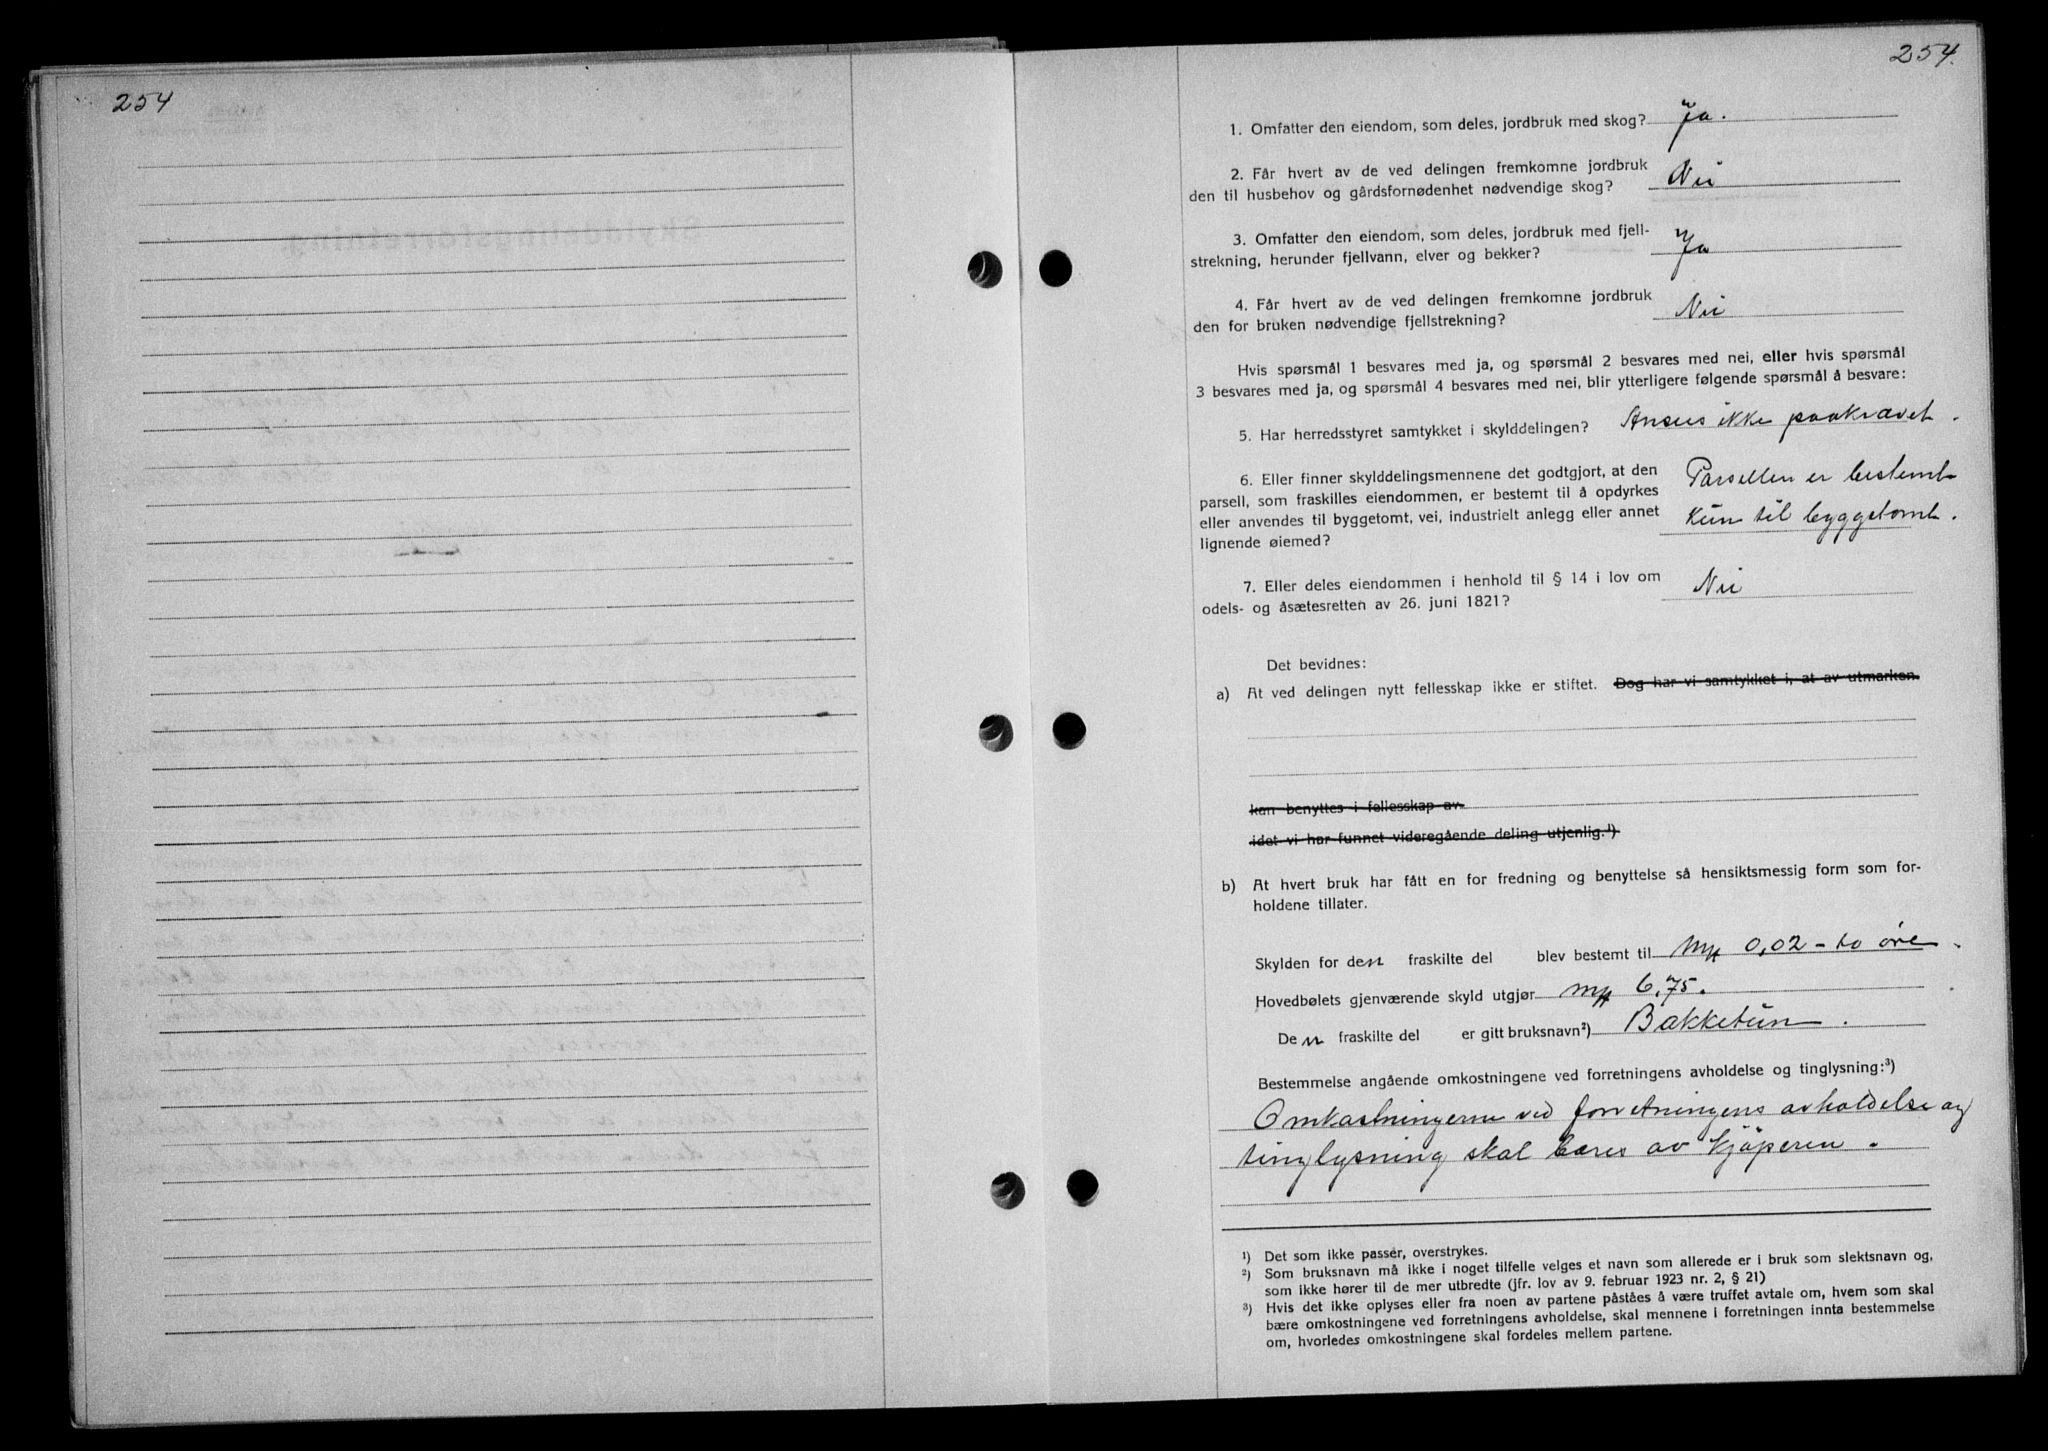 254
254.
1. Omfatter den eiendom, som deles, jordbruk med skog? Ja.
2. Får hvert av de ved delingen fremkomne jordbruk
den til husbehov og gårdsfornødenhet nødvendige skog? Nei
3. Omfatter den eiendom, som deles, jordbruk med fjell-
strekning, herunder fjellvann, elver og bekker? Ja
4. Får hvert av de ved delingen fremkomne jordbruk
den for bruken nødvendige fjellstrekning? Nei
Hvis spørsmål 1 besvares med ja, og spørsmål 2 besvares med nei, eller hvis spørsmål
3 besvares med ja, og spørsmål 4 besvares med nei, blir ytterligere følgende spørsmål å besvare:
5. Har herredsstyret samtykket i skylddelingen? Ansees ikke paakrævet.
6. Eller finner skylddelingsmennene det godtgjort, at den
parsell, som fraskilles eiendommen, er bestemt til å opdyrkes
eller anvendes til byggetomt, vei, industrielt anlegg eller annet
lignende øiemed?
Parsellen er bestemt
kun til byggetomt.
7. Eller deles eiendommen i henhold til § 14 i lov om
odels- og åsætesretten av 26. juni 1821? Nei
Det bevidnes:
a) At ved delingen nytt fellesskap ikke er stiftet. Dog har vi samtykket i, at av utmarken.
kan benyttes i fellesskap av.
idet vi har funnet videregående deling utjenlig.¹)
b) At hvert bruk har fått en for fredning og benyttelse så hensiktsmessig form som for-
holdene tillater.
Skylden for den fraskilte del blev bestemt til Mk 0,02 - to øre.
Hovedbølets gjenværende skyld utgjør mk 6,75.
Den fraskilte del er gitt bruksnavn²) Bakketun.
Bestemmelse angående omkostningene ved forretningens avholdelse og tinglysning:³)
Omkostningerne ved forretningens avholdelse og
tinglysning skal bæres av kjøperen.
¹) Det som ikke passer, overstrykes.
²) Som bruksnavn må ikke i noget tilfelle velges et navn som allerede er i bruk som slektsnavn og,
som ikke hører til de mer utbredte (jfr. lov av 9. februar 1923 nr. 2, § 21)
³) Hvis det ikke oplyses eller fra noen av partene påståes å være truffet avtale om, hvem som skal
bære omkostningene ved forretningens avholdelse, skal mennene i forretningen innta bestemmelse
om, hvorledes omkostningene skal fordeles mellem partene.